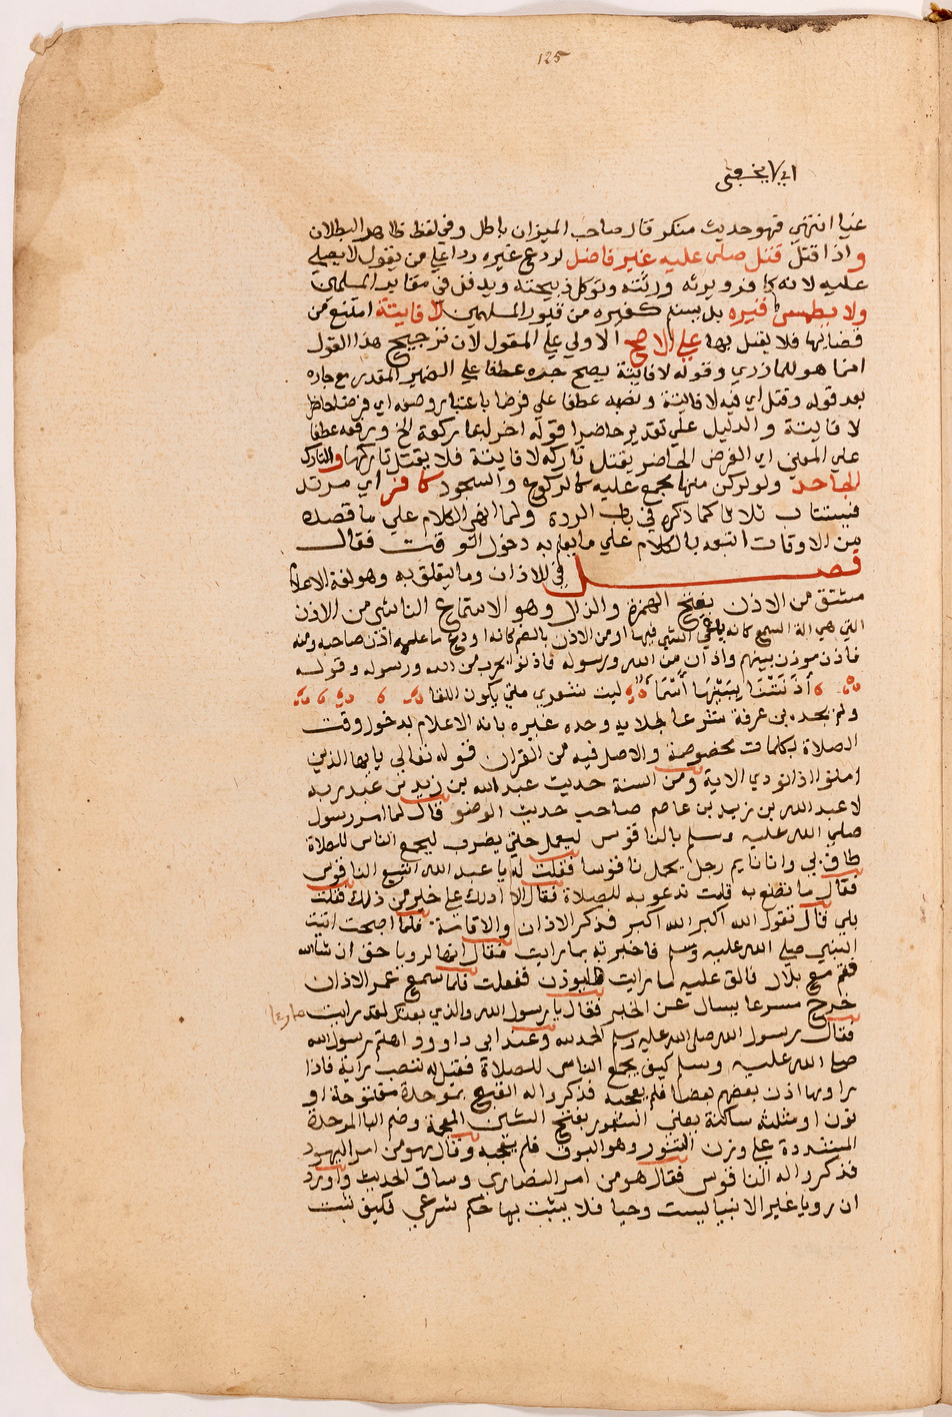 125
عنيا انتهي فهو حديث منكر قال صاحب الميزان باطل وفي لفظ ظاهر البطلان
واذا قتل قتل صلى عليه غير فاضل لردع غيره ردا علي من يقول لا يصلي
عليه لانه كافر ويرثه ورثته وتوكل ذبيحته ويدفن في مقابر المسلمين
ولا يطمس قبره بل يسنم كغيره من قبور المسلمين لا فايتة امتنع من
قضائها فلا يقتل بها علي الاصح الاولي علي المقول لان ترجيح هذا القول
انما هو للمازري وقوله لا فايتة يصح جره عطفا علي الضمير المقدر مع جاره
بعد قوله وقتل اي فيه لا فايتة ونصبه عطفا علي فرضا باعتبار وصفه اي فرضا حاضرا
لا فايتة والدليل علي تقدير حاضرا قوله اخر لبقا ركعة الخ ورفعه عطفا
علي المعني اي الفرض الحاضر يقتل تاركه لا فايتة فلا يقتل تاركها والتارك
الجاحد ولو لركن منها مجمع عليه كالركوع والسجود كافر اي مرتد
فيستتاب ثلاثا كما ذكره في باب الردة ولما انهي الكلام علي ما قصده
من الاوقات اتبعه بالكلام علي ما يعلم به دخول الوقت فقال
فصل في الاذان وما يتعلق به وهو لغة الاعلام
مشتق من الاذن بفتح الهمزة والذال وهو الاستماع الناشي من الاذن
التي هي الة السمع كانه يلقي الشي فيها او من الاذن بالضم كانه اودع ما علمه اذن صاحبه ومنه
فاذن موذن بينهم واذان من الله ورسوله فاذنوا بحرب من الله ورسوله وقوله
أذنتنا ببينها أسما ليت شعري متي يكون اللقا
ولم يحده بن عرفة شرعا لجلايه وحده غيره بانه الاعلام بدخول وقت
الصلاة بكلمات مخصوصة والاصل فيه من القران قوله تعالي يايها الذين
امنوا اذا نودي الاية ومن السنة حديث عبد الله بن زيد بن عبد ربه
لا عبد الله بن زيد بن عاصم صاحب حديث الوضو قال لما امر رسول
صلي الله عليه وسلم بالناقوس ليعمل حتي يضرب ليجمع الناس للصلاة
طاف بي وانا نايم رجل يحمل ناقوسا فقلت له يا عبد الله اتبيع الناقوس
فقال ما تصنع به قلت ندعو به للصلاة فقال الا ادلك علي خير من ذلك فقلت
بلي قال تقول الله اكبر الله اكبر فذكر الاذان والاقامة فلما اصبحت اتيت
النبي صلي الله عليه وسلم فاخبرته بما رايت فقال انها لرويا حق ان شاالله
فقم مع بلال فالق عليه ما رايت فليوذن ففعلت فلما سمع عمر الاذان
خرج مسرعا يسال عن الخبر فقال يا رسول الله والذي بعثك لقد رايت
فقال رسول الله صلي الله عليه وسلم الحمد لله وعند ابي داوود اهتم رسول الله
صلي الله عليه وسلم كيف يجمع الناس للصلاة فقيل له تنصب راية فاذا
راوها اذن بعضهم بعضا فلم يعجبه فذكر له القبع بموحدة مفتوحة او
نون او مثلثة ساكنة يعني الشبور بفتح الشين المعجمة وضم البا الموحدة
المشددة علي وزن التنور وهو البوق فلم يعجبه وقال هو من امر اليهود
فذكر له الناقوس فقال هو من امر النصاري وساق الحديث واورد
ان رويا غير الانبيا ليست وحيا فلا يثبت بها حكم شرعي فكيف ثبت